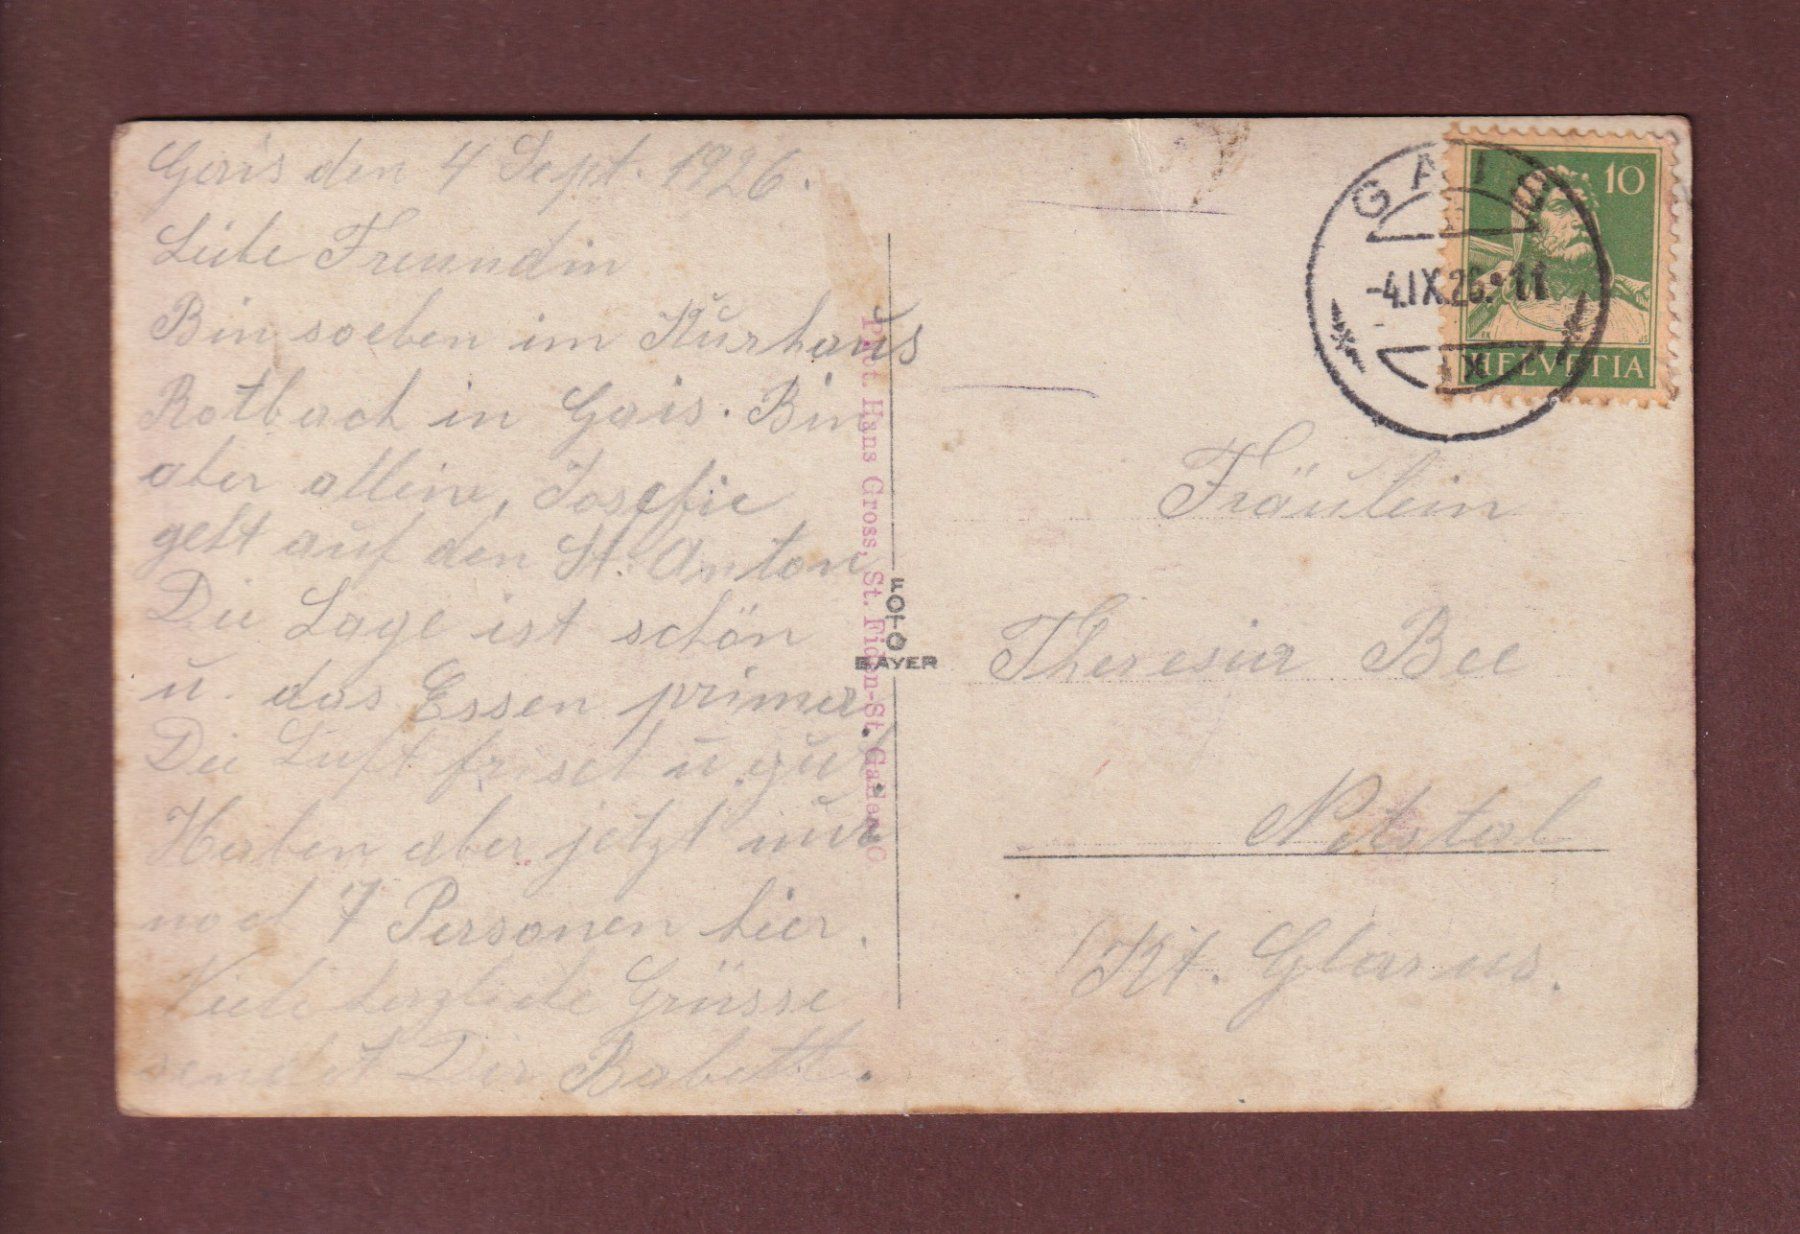 Gais den 4 Sept. 1926.
Liebe Freundin
Bin soeben im Kurhaus
Rotbach in Gais. Bin
aber allein, Josefie
geht auf den St. Anton
Die Lage ist schön
u. das Essen prima.
Die Luft frisch u gut.
Haben aber jetzt nur
noch 7 Personen hier.
Viele herzliche Grüsse
sendet Dir Babett.
Phot. Hans Gross, St. Fiden-St. Gallen O
FOTO
BAYER
GAIS
-4.IX.26.-11
X
10
HELVETIA
Fräulein
Theresia Bee
Netstal
Kt. Glarus.